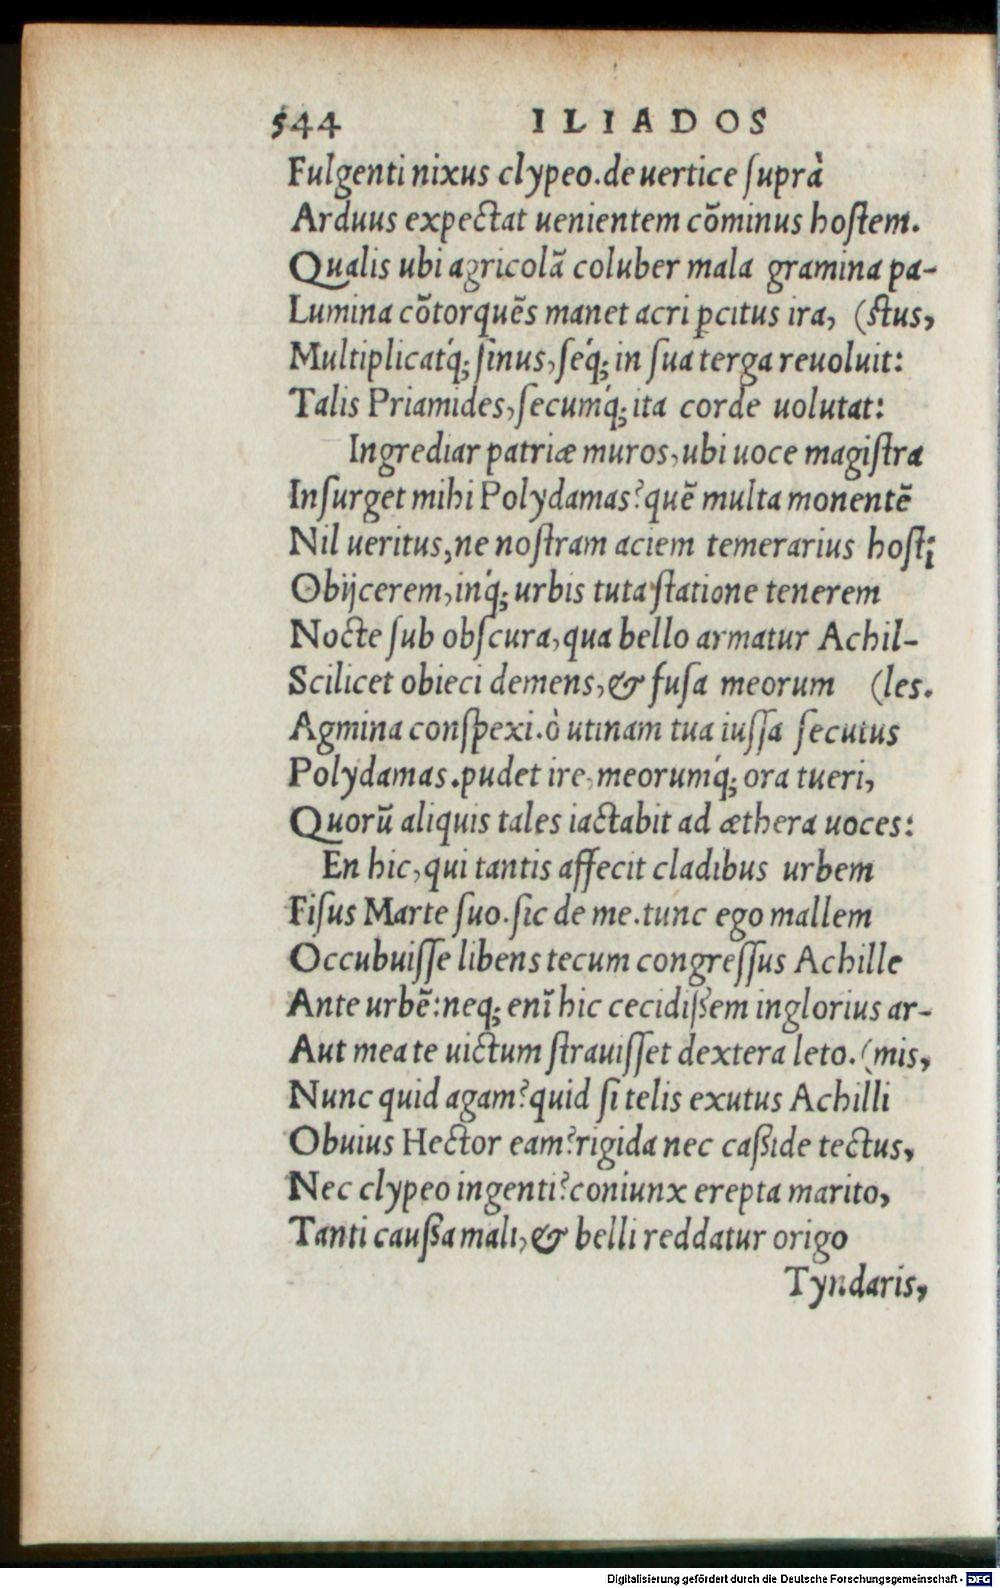 544 ILIADOS
Fulgenti nixus clypeo. de uertice ſuprà
Arduus expectat uenientem cõminus hoſtem.
Qualis ubi agricolã coluber mala gramina pa-
Lumina cõtorquẽs manet acri ꝑcitus ira, (ſtus,
Multiplicatq́; ſinus, ſeq́; in ſua terga reuoluit:
Talis Priamides, ſecumq́; ita corde uolutat:
Ingrediar patriæ muros, ubi uoce magiſtra
Inſurget mihi Polydamas? quẽ multa monentẽ
Nil ueritus, ne noſtram aciem temerarius hoſti
Obijcerem, inq́; urbis tuta ſtatione tenerem
Nocte ſub obſcura, qua bello armatur Achil-
Scilicet obieci demens, & fuſa meorum (les.
Agmina conſpexi. ò utinam tua iuſſa ſecutus
Polydamas. pudet ire, meorumq́; ora tueri,
Quorũ aliquis tales iactabit ad æthera uoces:
En hic, qui tantis affecit cladibus urbem
Fiſus Marte ſuo. ſic de me. tunc ego mallem
Occubuiſſe libens tecum congreſſus Achille
Ante urbẽ: neq; enĩ hic cecidißem inglorius ar-
Aut mea te uictum ſtrauiſſet dextera leto. (mis,
Nunc quid agam? quid ſi telis exutus Achilli
Obuius Hector eam? rigida nec caßide tectus,
Nec clypeo ingenti? coniunx erepta marito,
Tanti caußa mali, & belli reddatur origo
Tyndaris,
Digitalisierung gefördert durch die Deutsche Forschungsgemeinschaft - DFG